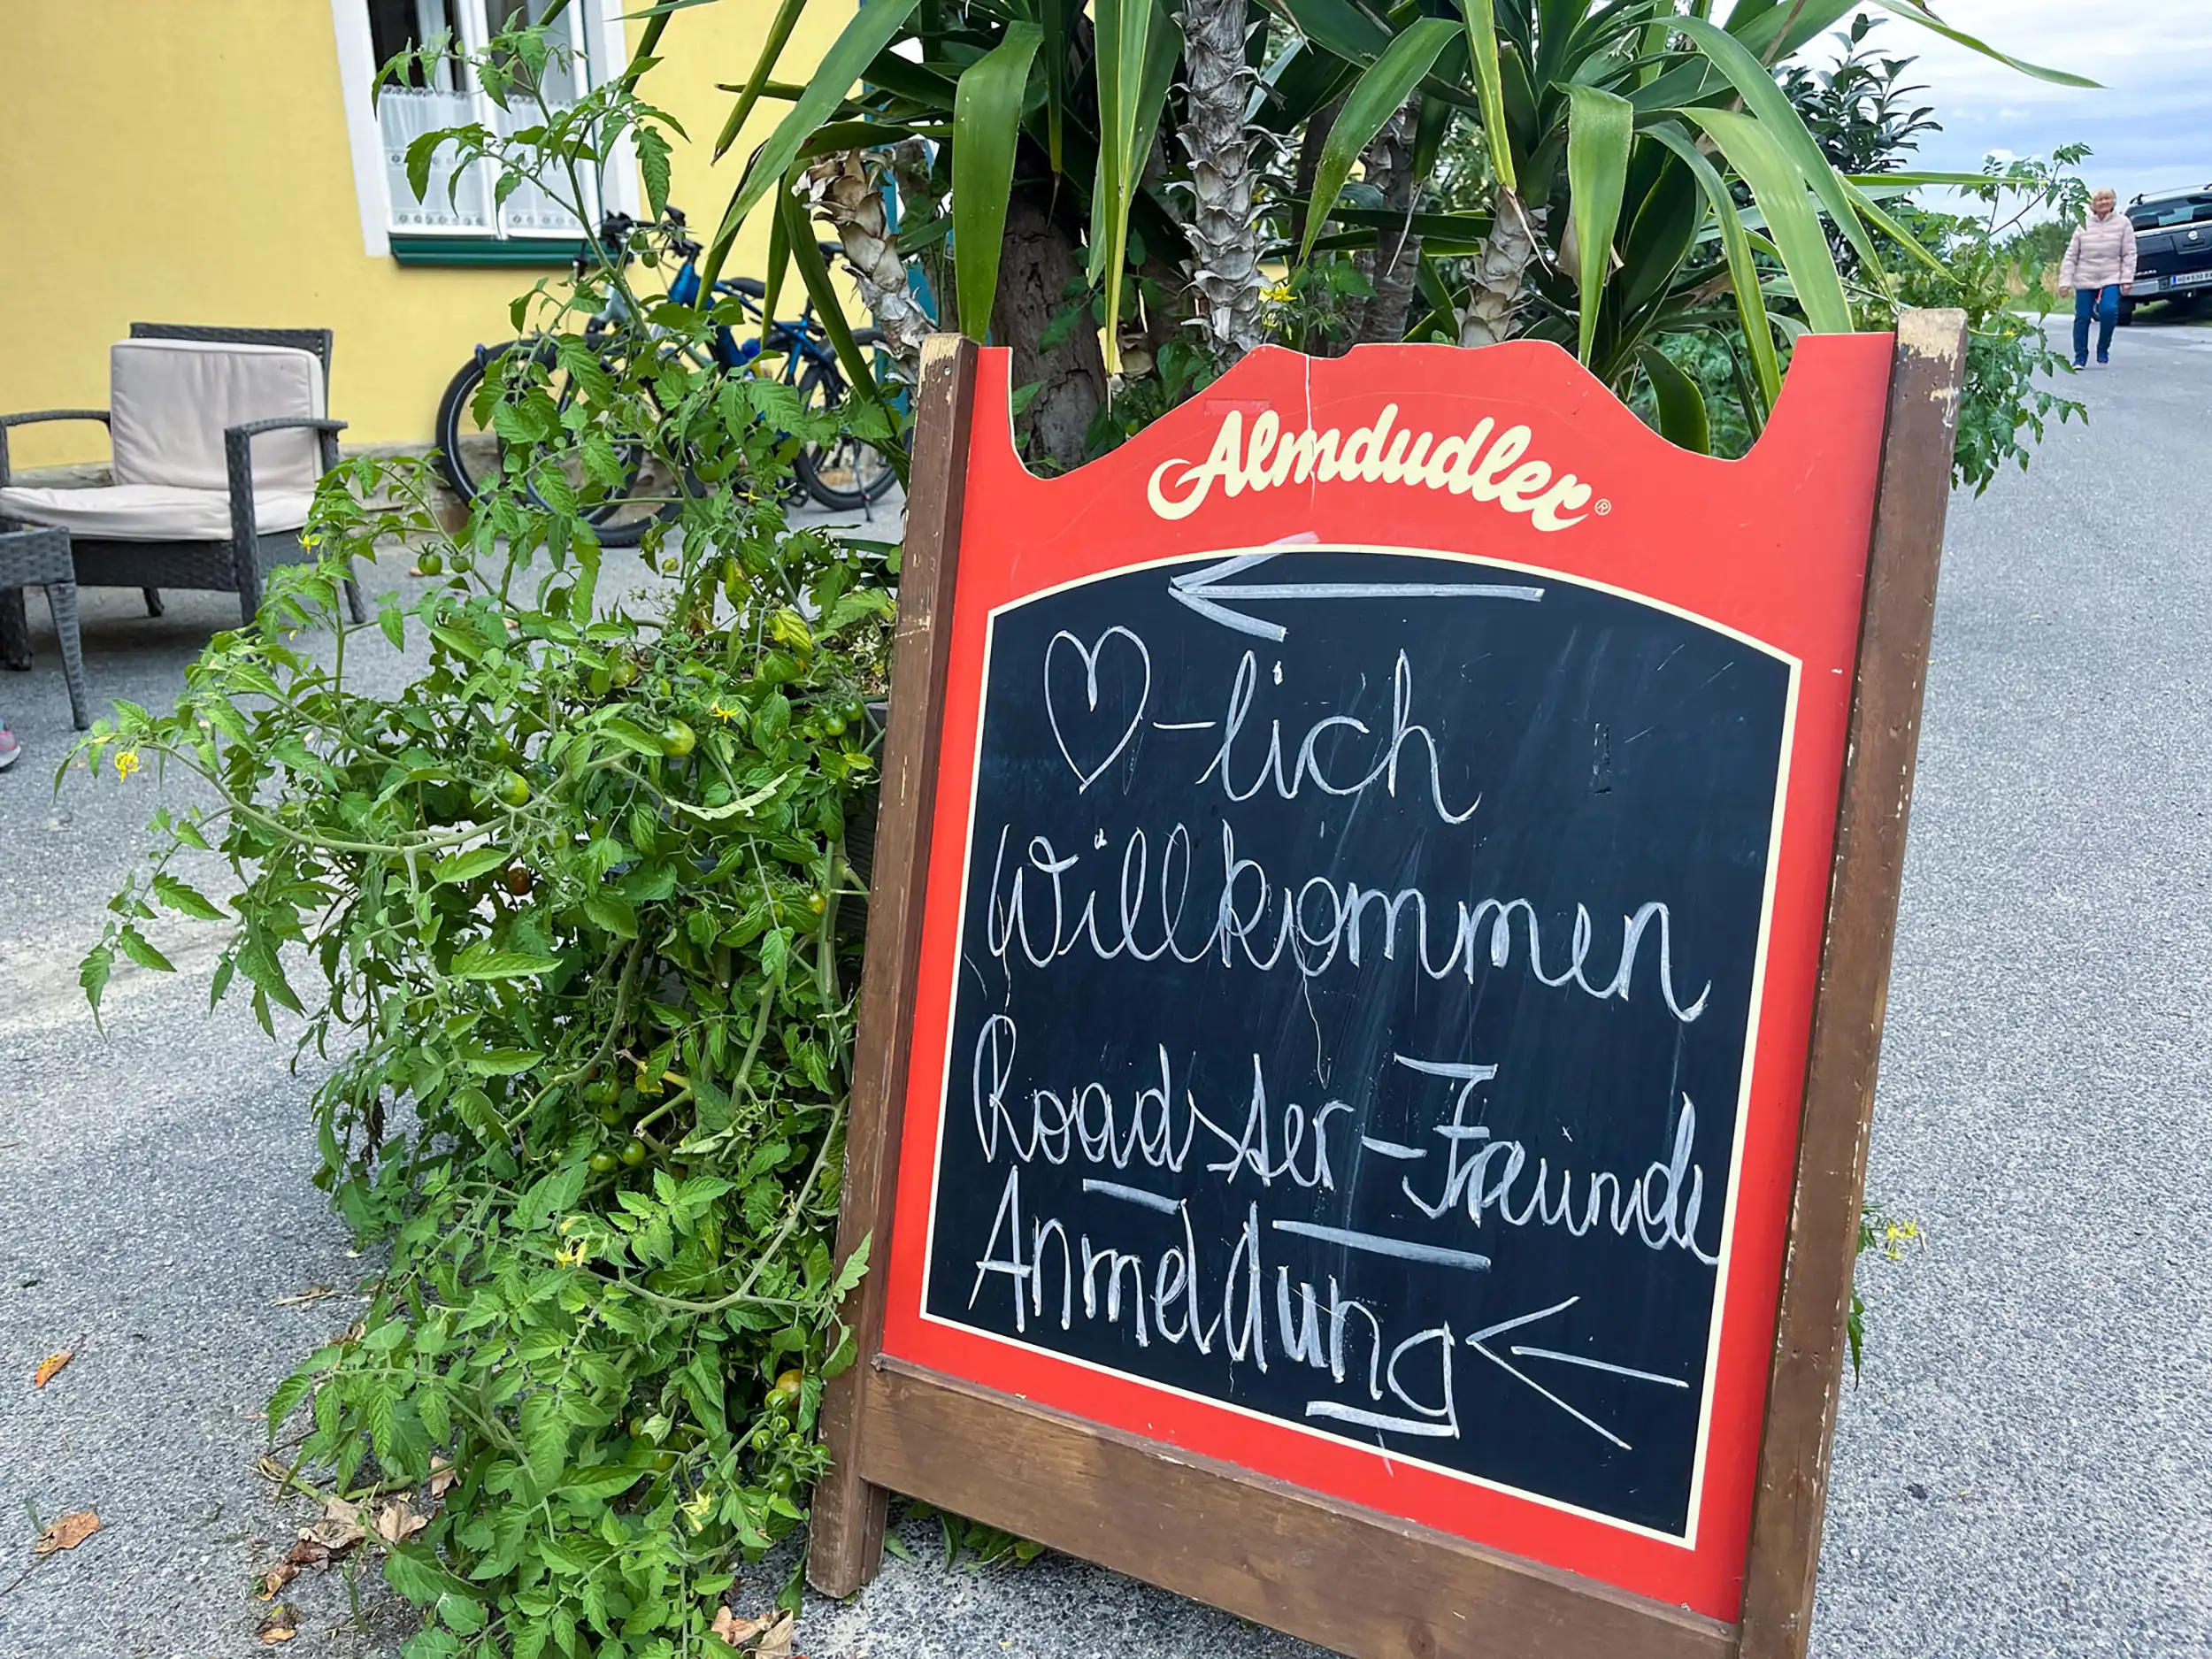 Almdudler®
♡-lich
Willkommen
Roadster-Freunde
Anmeldung